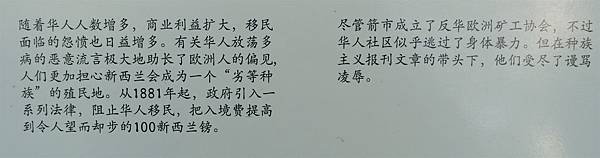 随着华人人数增多，商业利益扩大，移民
面临的怨愤也日益增多。有关华人放荡多
病的恶意流言极大地助长了欧洲人的偏见，
人们更加担心新西兰会成为一个“劣等种
族”的殖民地。从1881年起，政府引入一
系列法律，阻止华人移民，把入境费提高
到令人望而却步的100新西兰镑。
尽管箭市成立了反华欧洲矿工协会，不过
华人社区似乎逃过了身体暴力。但在种族
主义报刊文章的带头下，他们受尽了谩骂
凌辱。